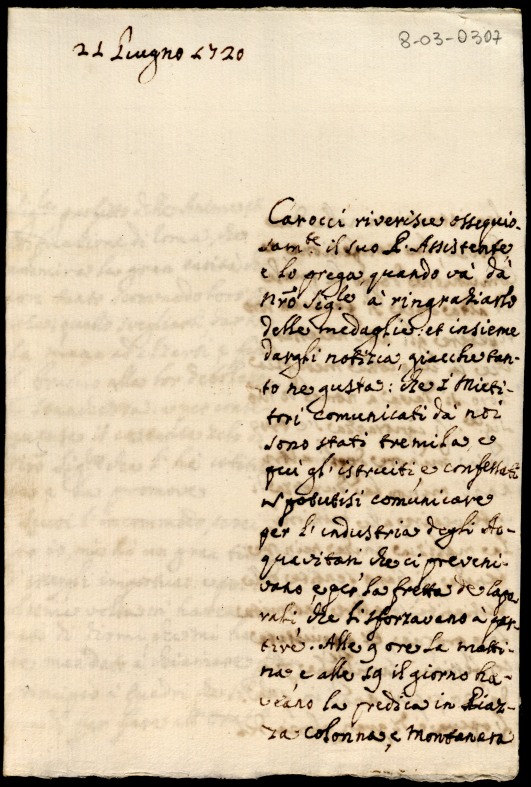 21 Giugno 1720
8-03-0307
Carocci riverisce ossequio-
sam.te il suo P. Assistente
e lo prega, quando và dà
Nrõ Sig.re à ringraziarlo
delle medaglie: et insieme
dargli notizia, giacche tan-
to ne gusta: che i Mieti-
tori comunicati dà noi
sono stati tremila, e
più gl'istruiti, e confessati
potutisi comunicare
per l'industria degli Ac-
quavitari che ci preveni-
vano e per la fretta de Capo-
rali che li sforzavano à par-
tire. Alle 9 ore la matti-
na, e alle 19 il giorno ha-
veano la predica in Piaz-
za Colonna, e Montanara